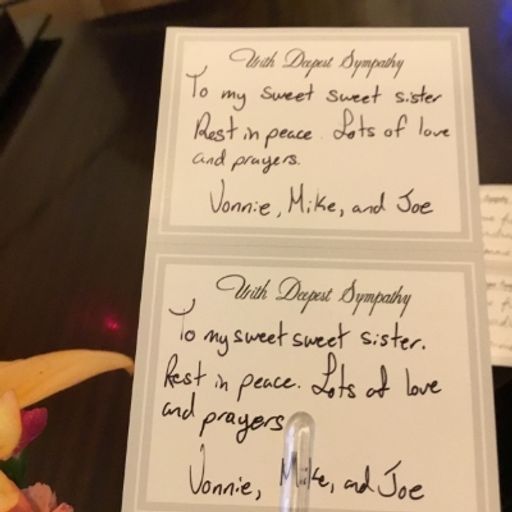 With Deepest Sympathy
To my sweet sweet sister
Rest in peace. Lots of love
and prayers.
Vonnie, Mike, and Joe
With Deepest Sympathy
To my sweet sweet sister.
Rest in peace. Lots of love
and prayers
Vonnie, Mike, and Joe